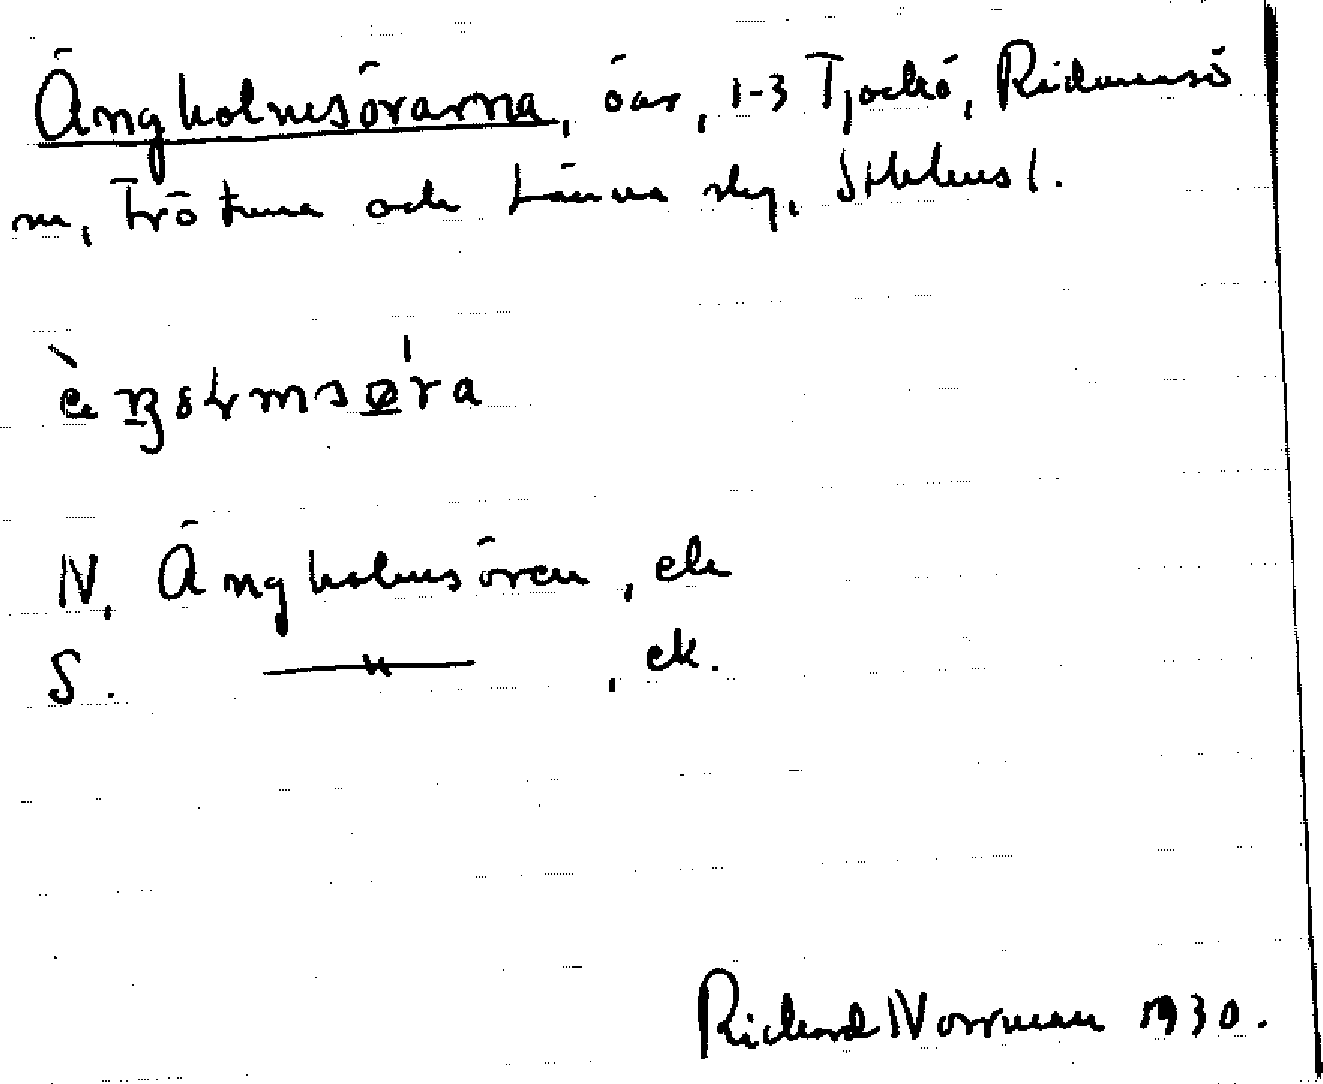 Ängholmsörarna, öar, 1-3 Tjockö, Ridmansö
m, Frötuna och Länna skg, Sthlms l.
N. Ängholmsören, ek
S. —〃— , ek.
Rickard Norrman 1930.